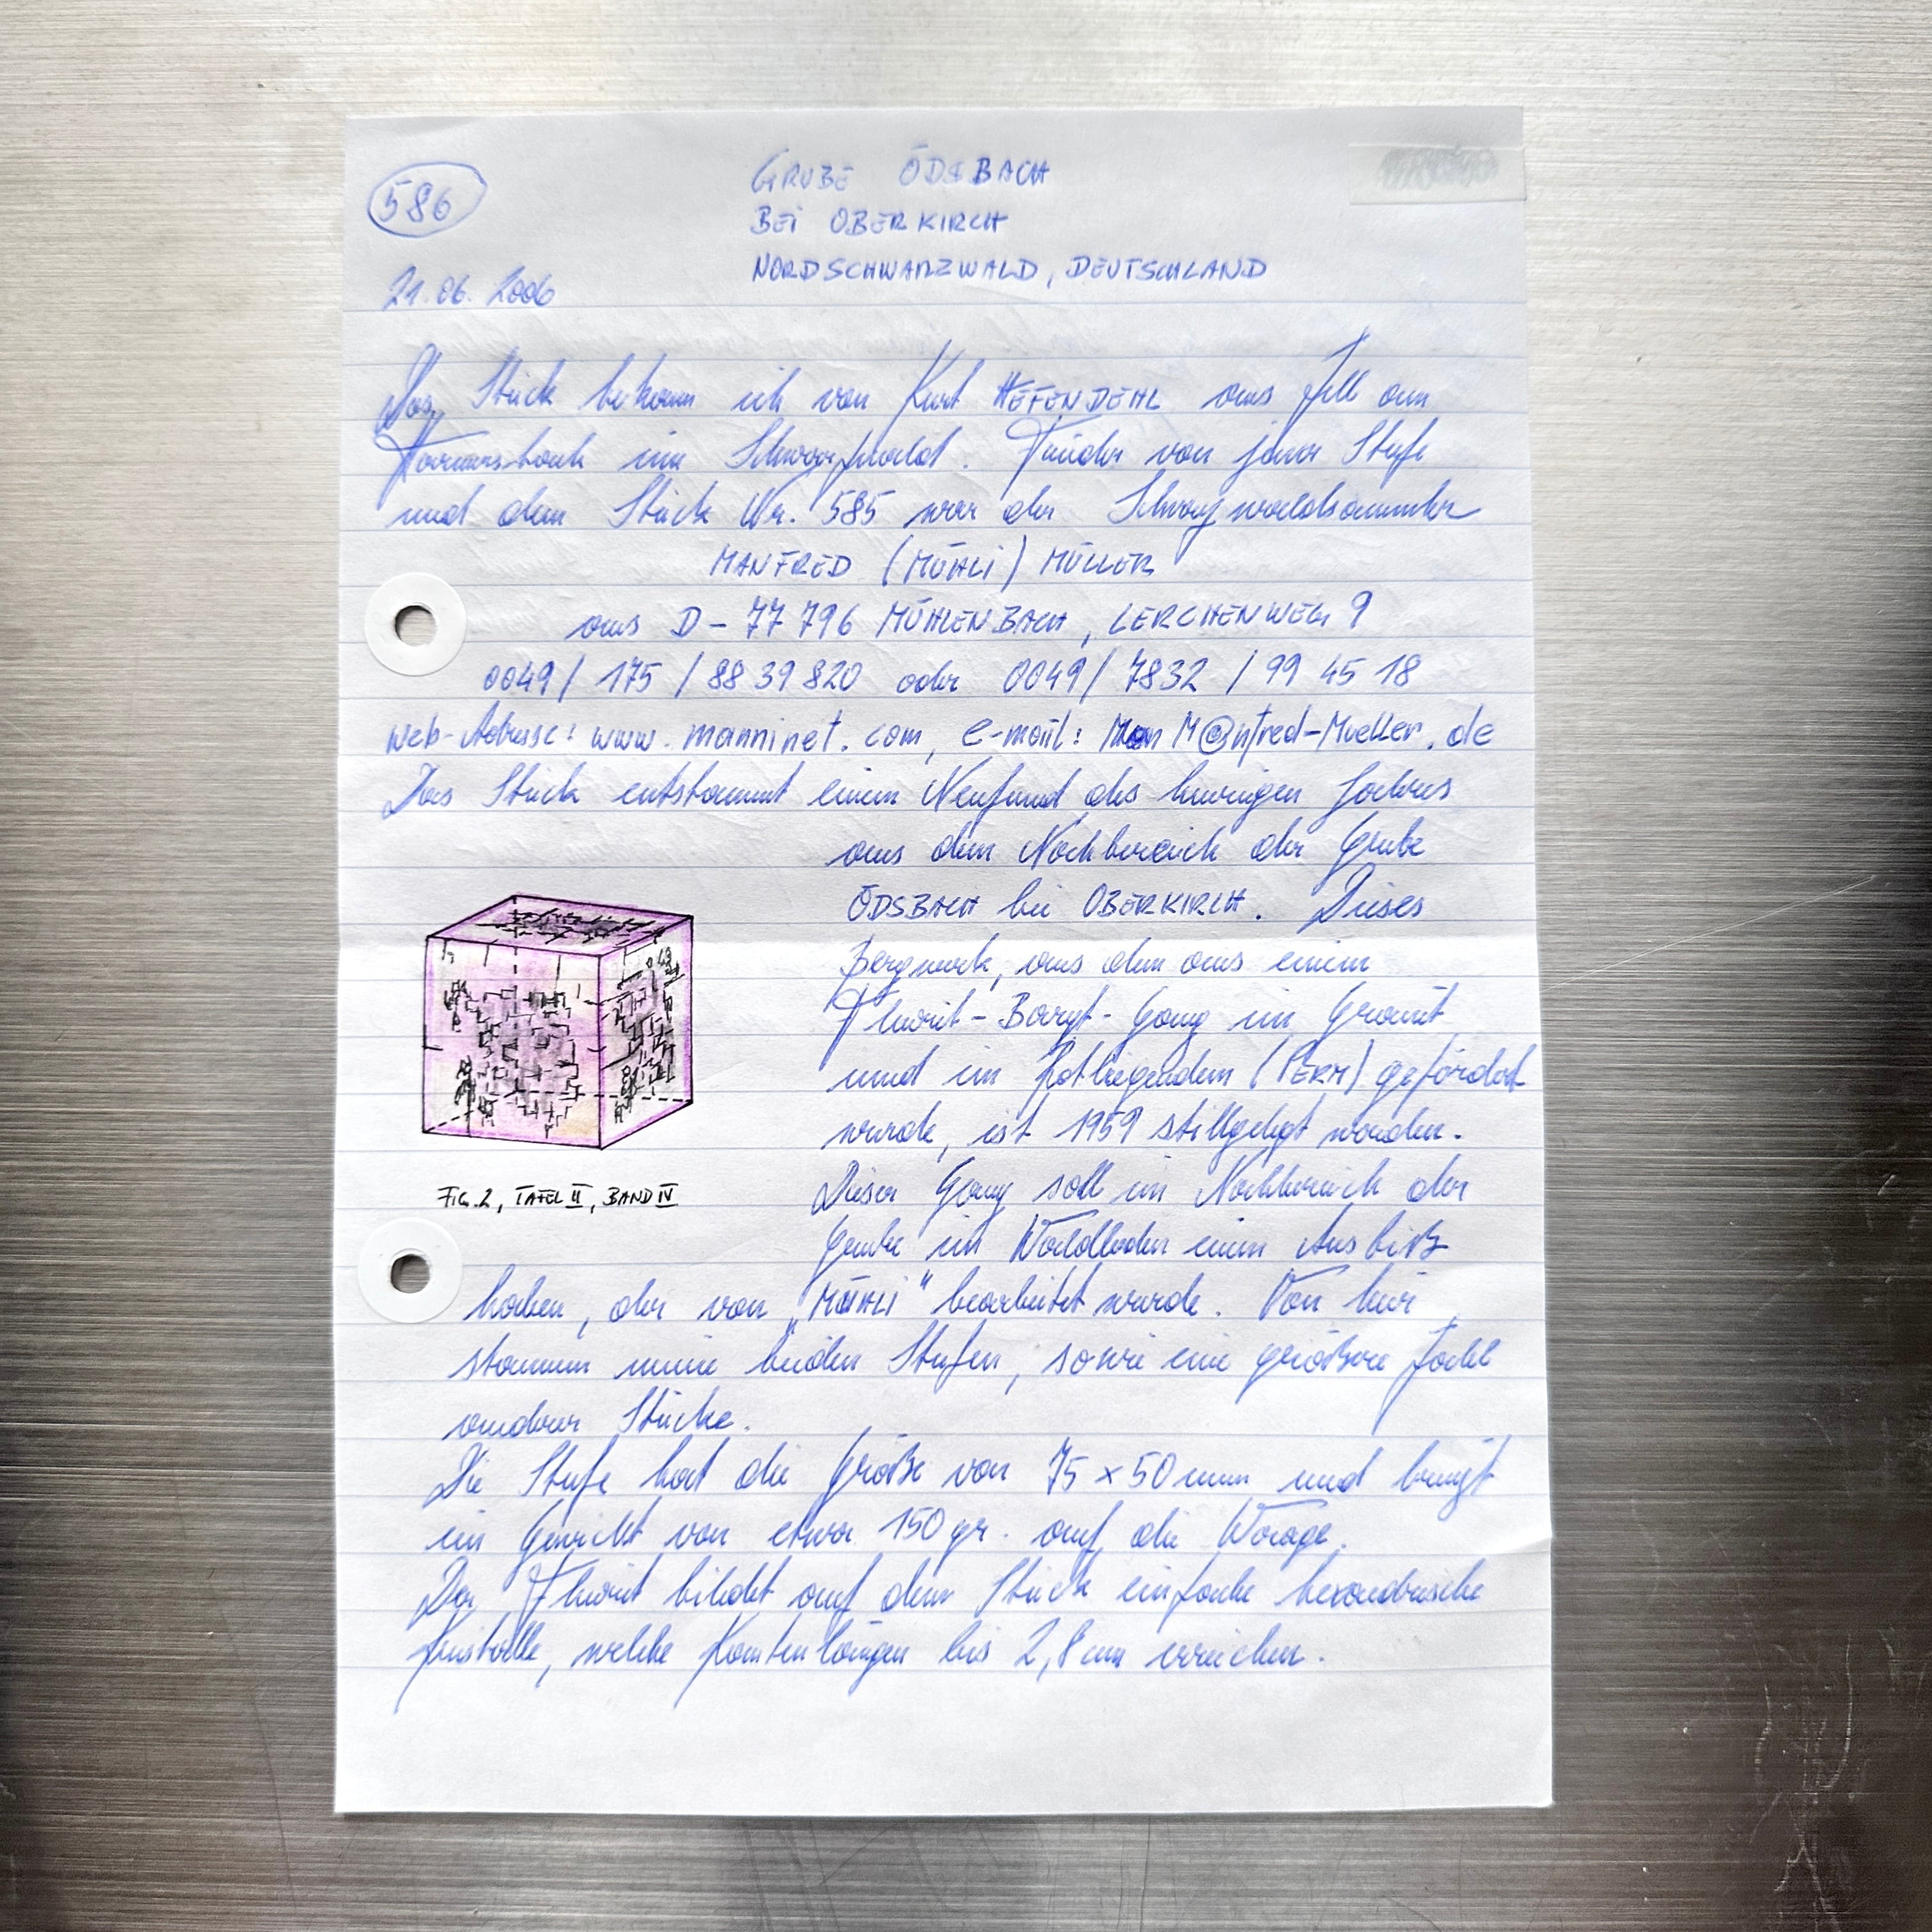 586
GRUBE ÖDSBACH
BEI OBERKIRCH
NORDSCHWARZWALD, DEUTSCHLAND
21.06.2006
Das Stück bekam ich von Kurt HEFENDEHL aus Zell am
Harmersbach im Schwarzwald. Finder von jener Stufe
und dem Stück Nr. 585 war der Schwarzwaldsammler
MANFRED (MÜHLI) MÜLLER
aus D-77 796 MÜHLENBACH, LERCHENWEG 9
0049/ 175 / 88 39 820 oder 0049/ 7832 / 99 45 18
Web-Adresse: www.manninet.com, e-mail: M@nfred-Mueller.de
Das Stück entstammt einem Neufund des heurigen Jahres
aus dem Nahbereich der Grube
ÖDSBACH bei OBERKIRCH. Dieses
Bergwerk, aus dem aus einem
Fluorit-Baryt-Gang im Granit
und im Rotliegendem (PERM) gefördert
wurde, ist 1959 stillgelegt worden.
Dieser Gang soll im Nahbereich der
Grube im Waldboden einen Ausbiß
FIG. 2, TAFEL II, BAND IV
haben, der von „MÜHLI" bearbeitet wurde. Von hier
stammen meine beiden Stufen, sowie eine größere Zahl
anderer Stücke.
Die Stufe hat die Größe von 75 x 50 mm und bringt
ein Gewicht von etwa 150 gr. auf die Waage.
Der Fluorit bildet auf dem Stück einfache hexaedrische
Kristalle, welche Kantenlängen bis 2,8 cm erreichen.